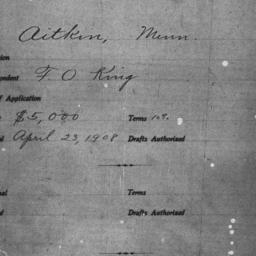 Aitkin, Minn.
F O King
f Application
$5,000 Terms 10%
April 23, 1908 Drafts Authorized
Terms
Drafts Authorized